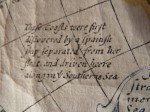 These Coasts were first
discovered by a Spanish
ship separated from her
fleet and driven here
along in yᵉ Southern Sea